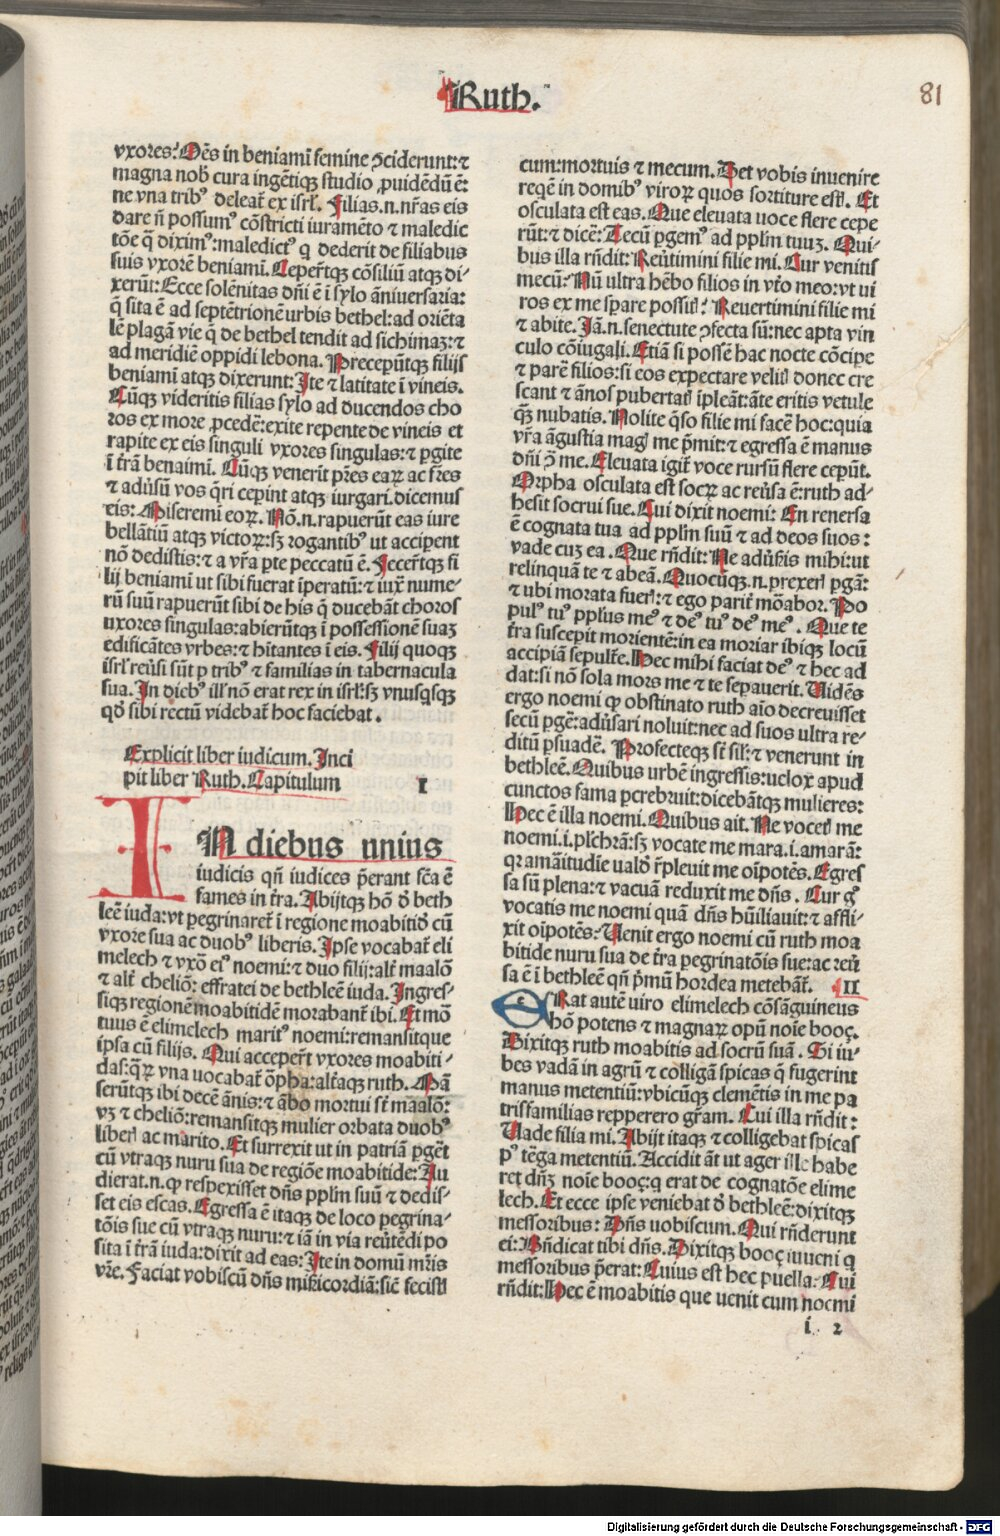 Ruth.
81
vxores? Oēs in beniamī femine ꝯciderunt: ⁊
magna nob̄ cura ingētiqꝫ studio ꝓuidēdū ē:
ne vna tribꝰ deleat̄ ex isrl̄. Filias.n.nr̄as eis
dare n̄ possumꝰ cōstricti iuramēto ⁊ maledic
tōe q̄ diximꝰ: maledictꝰ q dederit de filiabus
suis vxorē beniamī. Ceper̄tqꝫ cōsiliū atqꝫ di-
xerūt: Ecce solēnitas dn̄i ē ī sylo āniuersaria:
q̄ sita ē ad septētrionē urbis bethel: ad oriēta
lē plagā vie q̄ de bethel tendit ad sichimaꝫ: ⁊
ad meridiē oppidi lebona. Preceperūtqꝫ filijs
beniamī atqꝫ dixerunt: Ite ⁊ latitate ī vineis.
Cūqꝫ videritis filias sylo ad ducendos cho
ros ex more ꝓcedē: exite repente de vineis et
rapite ex eis singuli vxores singulas: ⁊ ꝑgite
ī tr̄a benaimī. Cūqꝫ venerīt pr̄es eaꝝ ac fr̄es
⁊ aduersū vos q̄ri ceperint atqꝫ iurgari. dicemus
eis: Miseremī eoꝝ. Nō.n.rapuerūt eas iure
bellātiū atqꝫ victoꝝ: sꝫ rogantibꝰ ut acciperent
nō dedistis: ⁊ a vr̄a ꝑte peccatū ē. Fecer̄tqꝫ fi
lij beniamī ut sibi fuerat īperatū: ⁊ iuxͭ nume-
rū suū rapuerūt sibi de his q̄ ducebāt choros
uxores singulas: abierūtqꝫ ī possessionē suaꝫ
edificātes vrbes: ⁊ hītantes ī eis. Filij quoqꝫ
isrl̄ reuersi sūt ꝑ tribꝰ ⁊ familias in tabernacula
sua. In diebꝰ ill nō erat rex in isrl̄: sꝫ vnusqsqꝫ
qd̄ sibi rectū videbat̄ hoc faciebat.
Explicit liber iudicum. Inci
pit liber Ruth. Capitulum I
IN diebus unius
iudicis qn̄ iudices p̄erant fc̄a ē
fames in tr̄a. Abijtqꝫ hō d̄ beth
leē iuda: vt ꝑegrinaret̄ ī regione moabitid cū
vxore sua ac duobꝰ liberis. Ipse vocabat̄ eli
melech ⁊ vxō eiꝰ noemi: ⁊ duo filij: alt̄ maalō
⁊ alt̄ cheliō: effratei de bethleē iuda. Ingres-
siqꝫ regionē moabitidē morabant̄ ibi. Et mō
tuus ē elimelech maritꝰ noemi: remansitque
ipsa cū filijs. Qui acceper̄t vxores moabiti-
das: q̄ꝝ vna uocabat̄ ōpha: alt̄aqꝫ ruth. Mā
serūtqꝫ ibi decē ānis: ⁊ ābo mortui st̄ maalō:
vꝫ ⁊ cheliō: remansitqꝫ mulier orbata duobꝰ
liber ac marito. Et surrexit ut in patriā ꝑgēt
cū vtraqꝫ nuru sua de regiōe moabitide: Au
dierat.n.ꝙ respexisset dn̄s pplm̄ suū ⁊ dedis-
set eis escas. Egressa ē itaqꝫ de loco ꝑegrina-
tōis sue cū vtraqꝫ nuru: ⁊ iā in via reuertēdi po
sita ī tr̄a iuda: dixit ad eas: Ite in domū mr̄is
vr̄e. Faciat vobiscū dn̄s mīꝫicordiā: sic̄ fecistl
cum: mortuis ⁊ mecum. Det vobis inuenire
reqē in domibꝰ viroꝝ quos sortiture est. Et
osculata est eas. Que eleuata uoce flere cepe
rūt: ⁊ dicē: Tecū ꝑgemꝰ ad pplm̄ tuuꝫ. Qui-
bus illa rn̄dit: Reuertimini filie mi. Cur venitis
mecū: Nū ultra hēbo filios in vt̄o meo: vt ui
ros ex me sperare possit? Reuertimini filie mi
⁊ abite. Iā.n.senectute ꝯfecta sū: nec apta vin
culo cōiugali. Etiā si possē hac nocte cōcipe
⁊ parē filios: si eos expectare velit donec cre
scant ⁊ ānos pubertatꝭ īpleāt: āte eritis vetule
qꝫ nubatis. Nolite q̄so filie mi facē hoc: quia
vr̄a āgustia magꝭ me p̄mit: ⁊ egressa ē manus
dn̄i ꝯ me. Eleuata igit̄ voce rursū flere cepūt.
Orpha osculata est socꝝ ac reuersa ē: ruth ad-
hesit socrui sue. Cui dixit noemi: En renersa
ē cognata tua ad pplm̄ suū ⁊ ad deos suos:
vade cuꝫ ea. Que rn̄dit: Ne aduerseris mihi: ut
relinquā te ⁊ abeā. Quocūqꝫ.n.prexer ꝑgā:
⁊ ubi morata fuerꝭ: ⁊ ego parit̄ mōabor. Po
pulꝰ tuꝰ pplus meꝰ ⁊ deꝰ tuꝰ deꝰ meꝰ. Que te
tr̄a susceperit morientē: in ea moriar ibiqꝫ locū
accipiā sepult̄e. Hec mihi faciat deꝰ ⁊ hec ad
dat: si nō sola mors me ⁊ te separauerit. Uidēs
ergo noemi ꝙ obstinato ruth aīo decreuisset
secū ꝑgē: aduersari noluit: nec ad suos ultra re-
ditū ꝑsuadē. Profecteqꝫ st̄ sil̄: ⁊ venerunt in
bethleē. Quibus urbē ingressis: uelox apud
cunctos fama ꝑcrebruit: dicebātqꝫ mulieres:
Hec ē illa noemi. Quibus ait. Ne vocetꝭ me
noemi.i.pl̄chrā: sꝫ vocate me mara.i.amarā:
qr amaritudīe ualde repleuit me oīpotēs. Egres
sa sū plena: ⁊ vacuā reduxit me dn̄s. Cur gͦ
vocatis me noemi quā dn̄s hūiliauit: ⁊ affli-
xit oīpotēs? Uenit ergo noemi cū ruth moa
bitide nuru sua de tr̄a ꝑegrinatōis sue: ac reuer
sa ē ī bethleē qn̄ p̄mū hordea metebāt̄. II
ERat autē uiro elimelech cōsāguineus
hō potens ⁊ magnaꝝ opū noīe booç.
Dixitqꝫ ruth moabitis ad socrū suā. Si iu-
bes vadā in agrū ⁊ colligā spicas q̄ fugerint
manus metentiū: vbicūqꝫ clemētis in me pa
trisfamilias repperero gr̄am. Cui illa rn̄dit:
Uade filia mi. Abijt itaqꝫ ⁊ colligebat spicas
pꝰ tēga metentiū. Accidit āt ut ager ille habe
ret dn̄ꝫ noīe booç: q erat de cognatōe elime
lech. Et ecce ipse veniebat d̄ bethleē: dixitqꝫ
messoribus: Dn̄s uobiscum. Qui rn̄derunt
ei: Bn̄dicat tibi dn̄s. Dixitqꝫ booç iuueni q
messoribus p̄erat: Cuius est hec puella: Cui
rn̄dit: Hec ē moabitis que uenit cum noemi
i 2
Digitalisierung gefördert durch die Deutsche Forschungsgemeinschaft - DFG